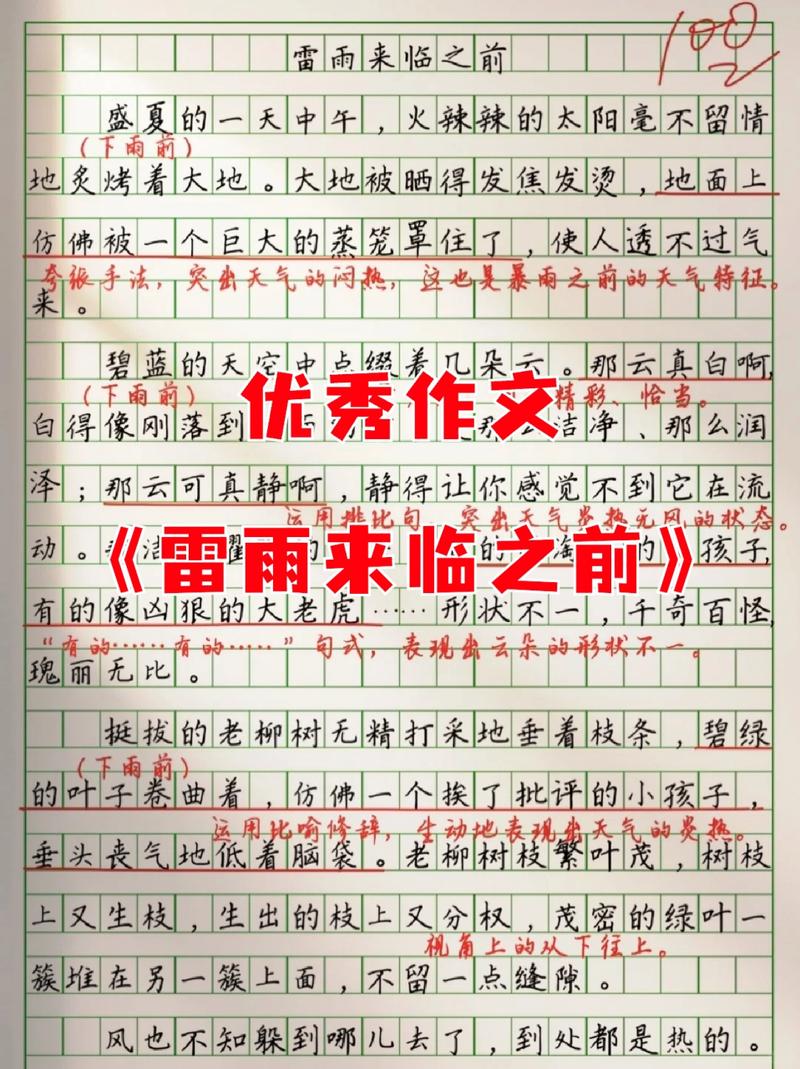 100
雷雨来临之前
盛夏的一天中午，火辣辣的太阳毫不留情
（下雨前）
地炙烤着大地。大地被晒得发焦发烫，地面上
仿佛被一个巨大的蒸笼罩住了，使人透不过气
夸张手法，突出天气的闷热，这也是暴雨之前的天气特征。
来。
碧蓝的天空中点缀着几朵云。那云真白啊，
（下雨前）
精彩、恰当。
优秀作文
白得像刚落到 洁净、那么润
泽；那云可真静啊，静得让你感觉不到它在流
运用排比句，突出天气炎热无风的状态。
动。 的 的孩子，
《雷雨来临之前》
有的像凶狠的大老虎……形状不一，千奇百怪，
“有的……有的……”句式，表现出云朵的形状不一。
瑰丽无比。
挺拔的老柳树无精打采地垂着枝条，碧绿
（下雨前）
的叶子卷曲着，仿佛一个挨了批评的小孩子，
运用比喻修辞，生动地表现出天气的炎热。
垂头丧气地低着脑袋。老柳树枝繁叶茂，树枝
上又生枝，生出的枝上又分杈，茂密的绿叶一
视角上的从下往上。
簇堆在另一簇上面，不留一点缝隙。
风也不知躲到哪儿去了，到处都是热的。